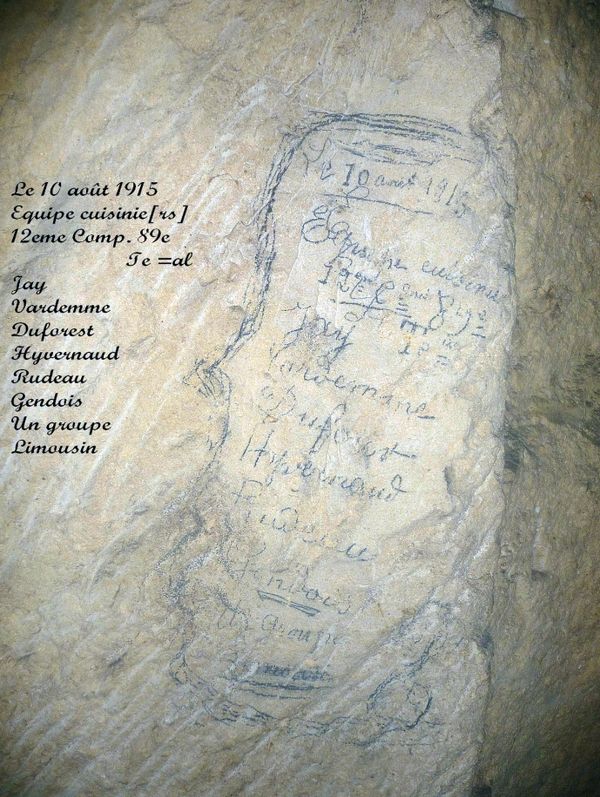 Le 10 août 1915
Equipe cuisinie[rs]
12eme Comp. 89e
Te =al
Jay
Vardemme
Duforest
Hyvernaud
Rudeau
Gendois
Un groupe
Limousin
Le 10 aout 1915
Equipe cuisinie
Jay
Duforest
Hyvernaud
Rudeau
Un groupe